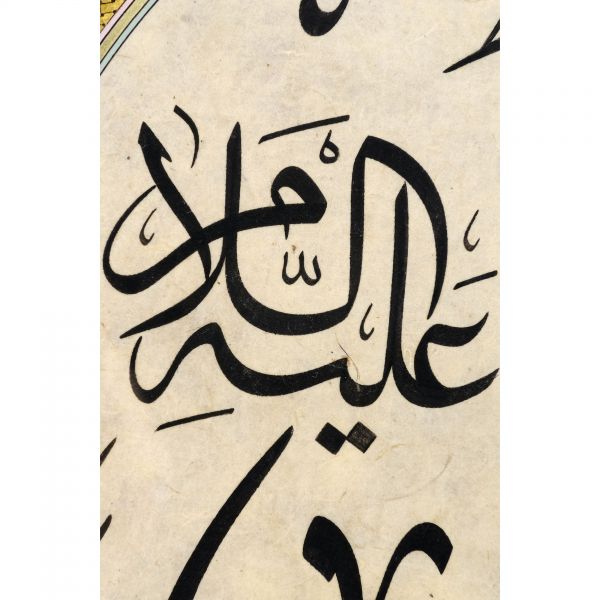 عَلَيْهِ السَّلَامُ